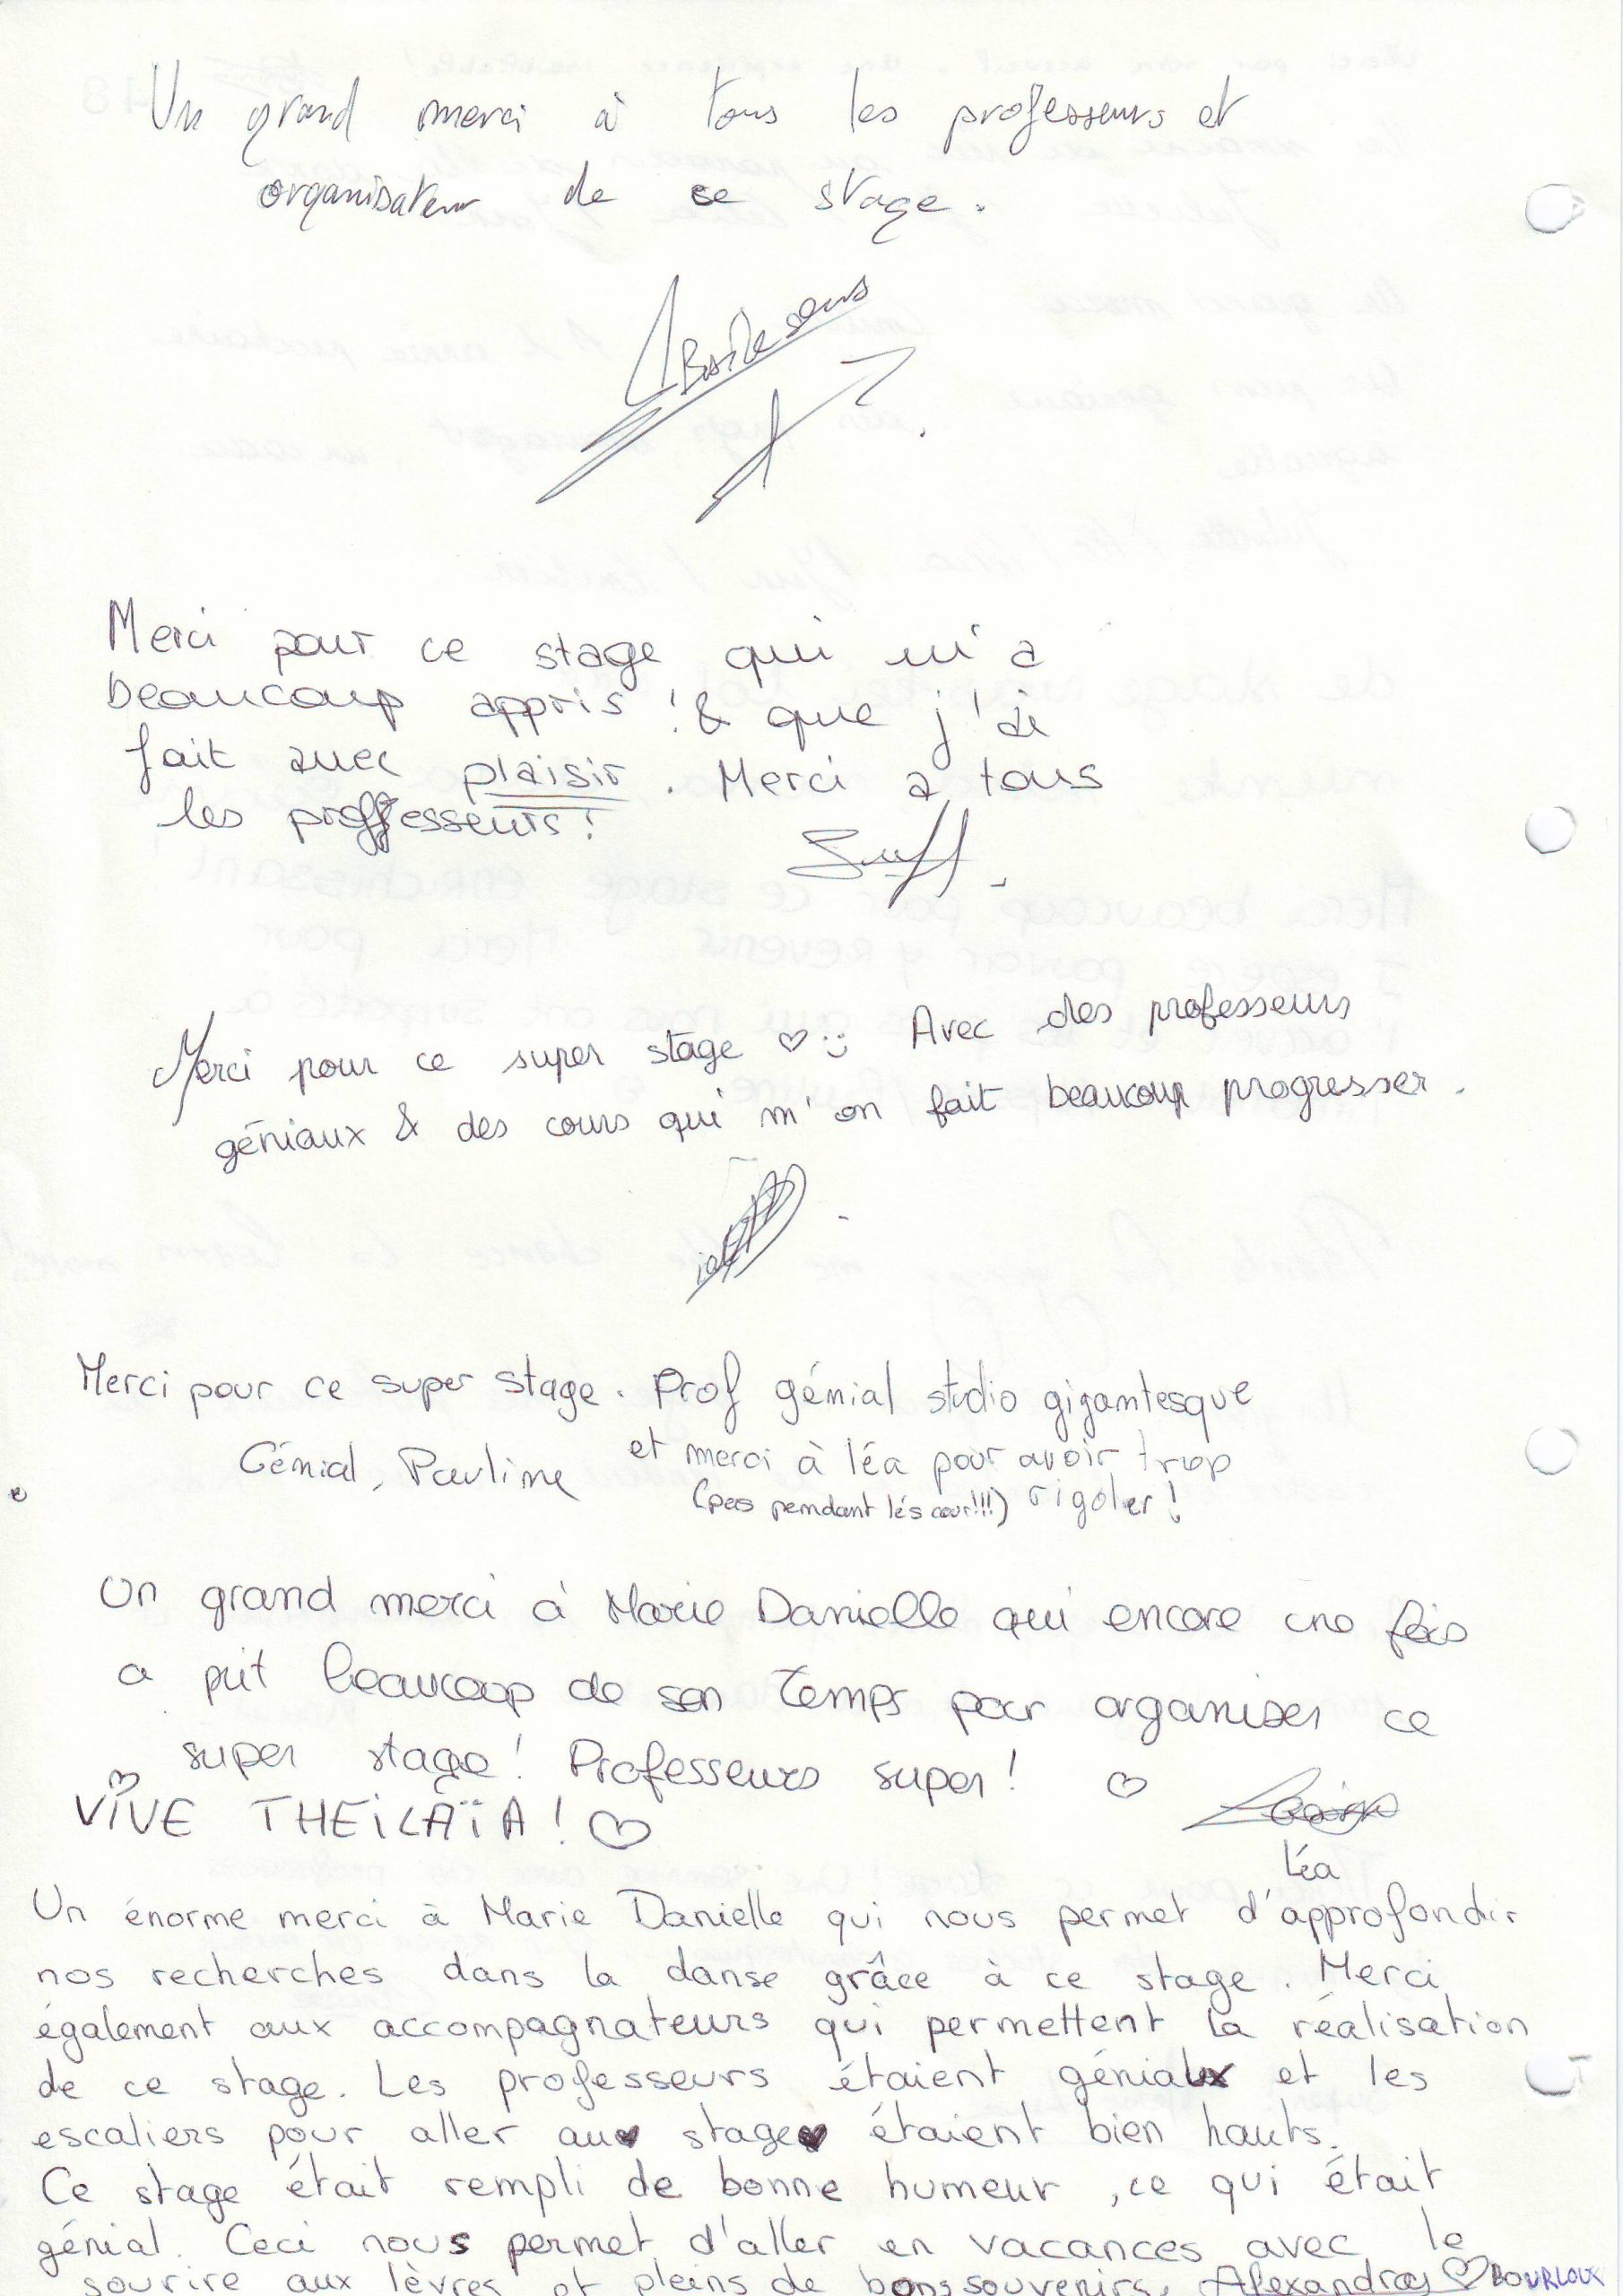 Un grand merci à tous les professeurs et
organisateur de ce stage.
Merci pour ce stage qui m'a
beaucoup appris ! & que j'ai
fait avec plaisir. Merci a tous
les proffesseurs !
Merci pour ce super stage ♡ :) Avec des professeurs
géniaux & des cours qui m'on fait beaucoup progresser.
Merci pour ce super stage. Prof génial studio gigantesque
Génial, Pauline
et merci à léa pour avoir trop
(pas pendant lés cour!!!) rigoler !
Un grand merci à Marie Danielle qui encore une fois
a prit beaucoup de son temps pour organiser ce
super stage ! Professeurs super ! ♡
VIVE THEILAÏA ! ♡
Léa
Un énorme merci à Marie Danielle qui nous permet d'approfondir
nos recherches dans la danse grâce à ce stage. Merci
également aux accompagnateurs qui permettent la réalisation
de ce stage. Les professeurs étaient géniaux et les
escaliers pour aller au stage étaient bien hauts.
Ce stage était rempli de bonne humeur, ce qui était
génial. Ceci nous permet d'aller en vacances avec le
sourire aux lèvres et pleins de bons souvenirs. Alexandra ♡ BOURLOUX